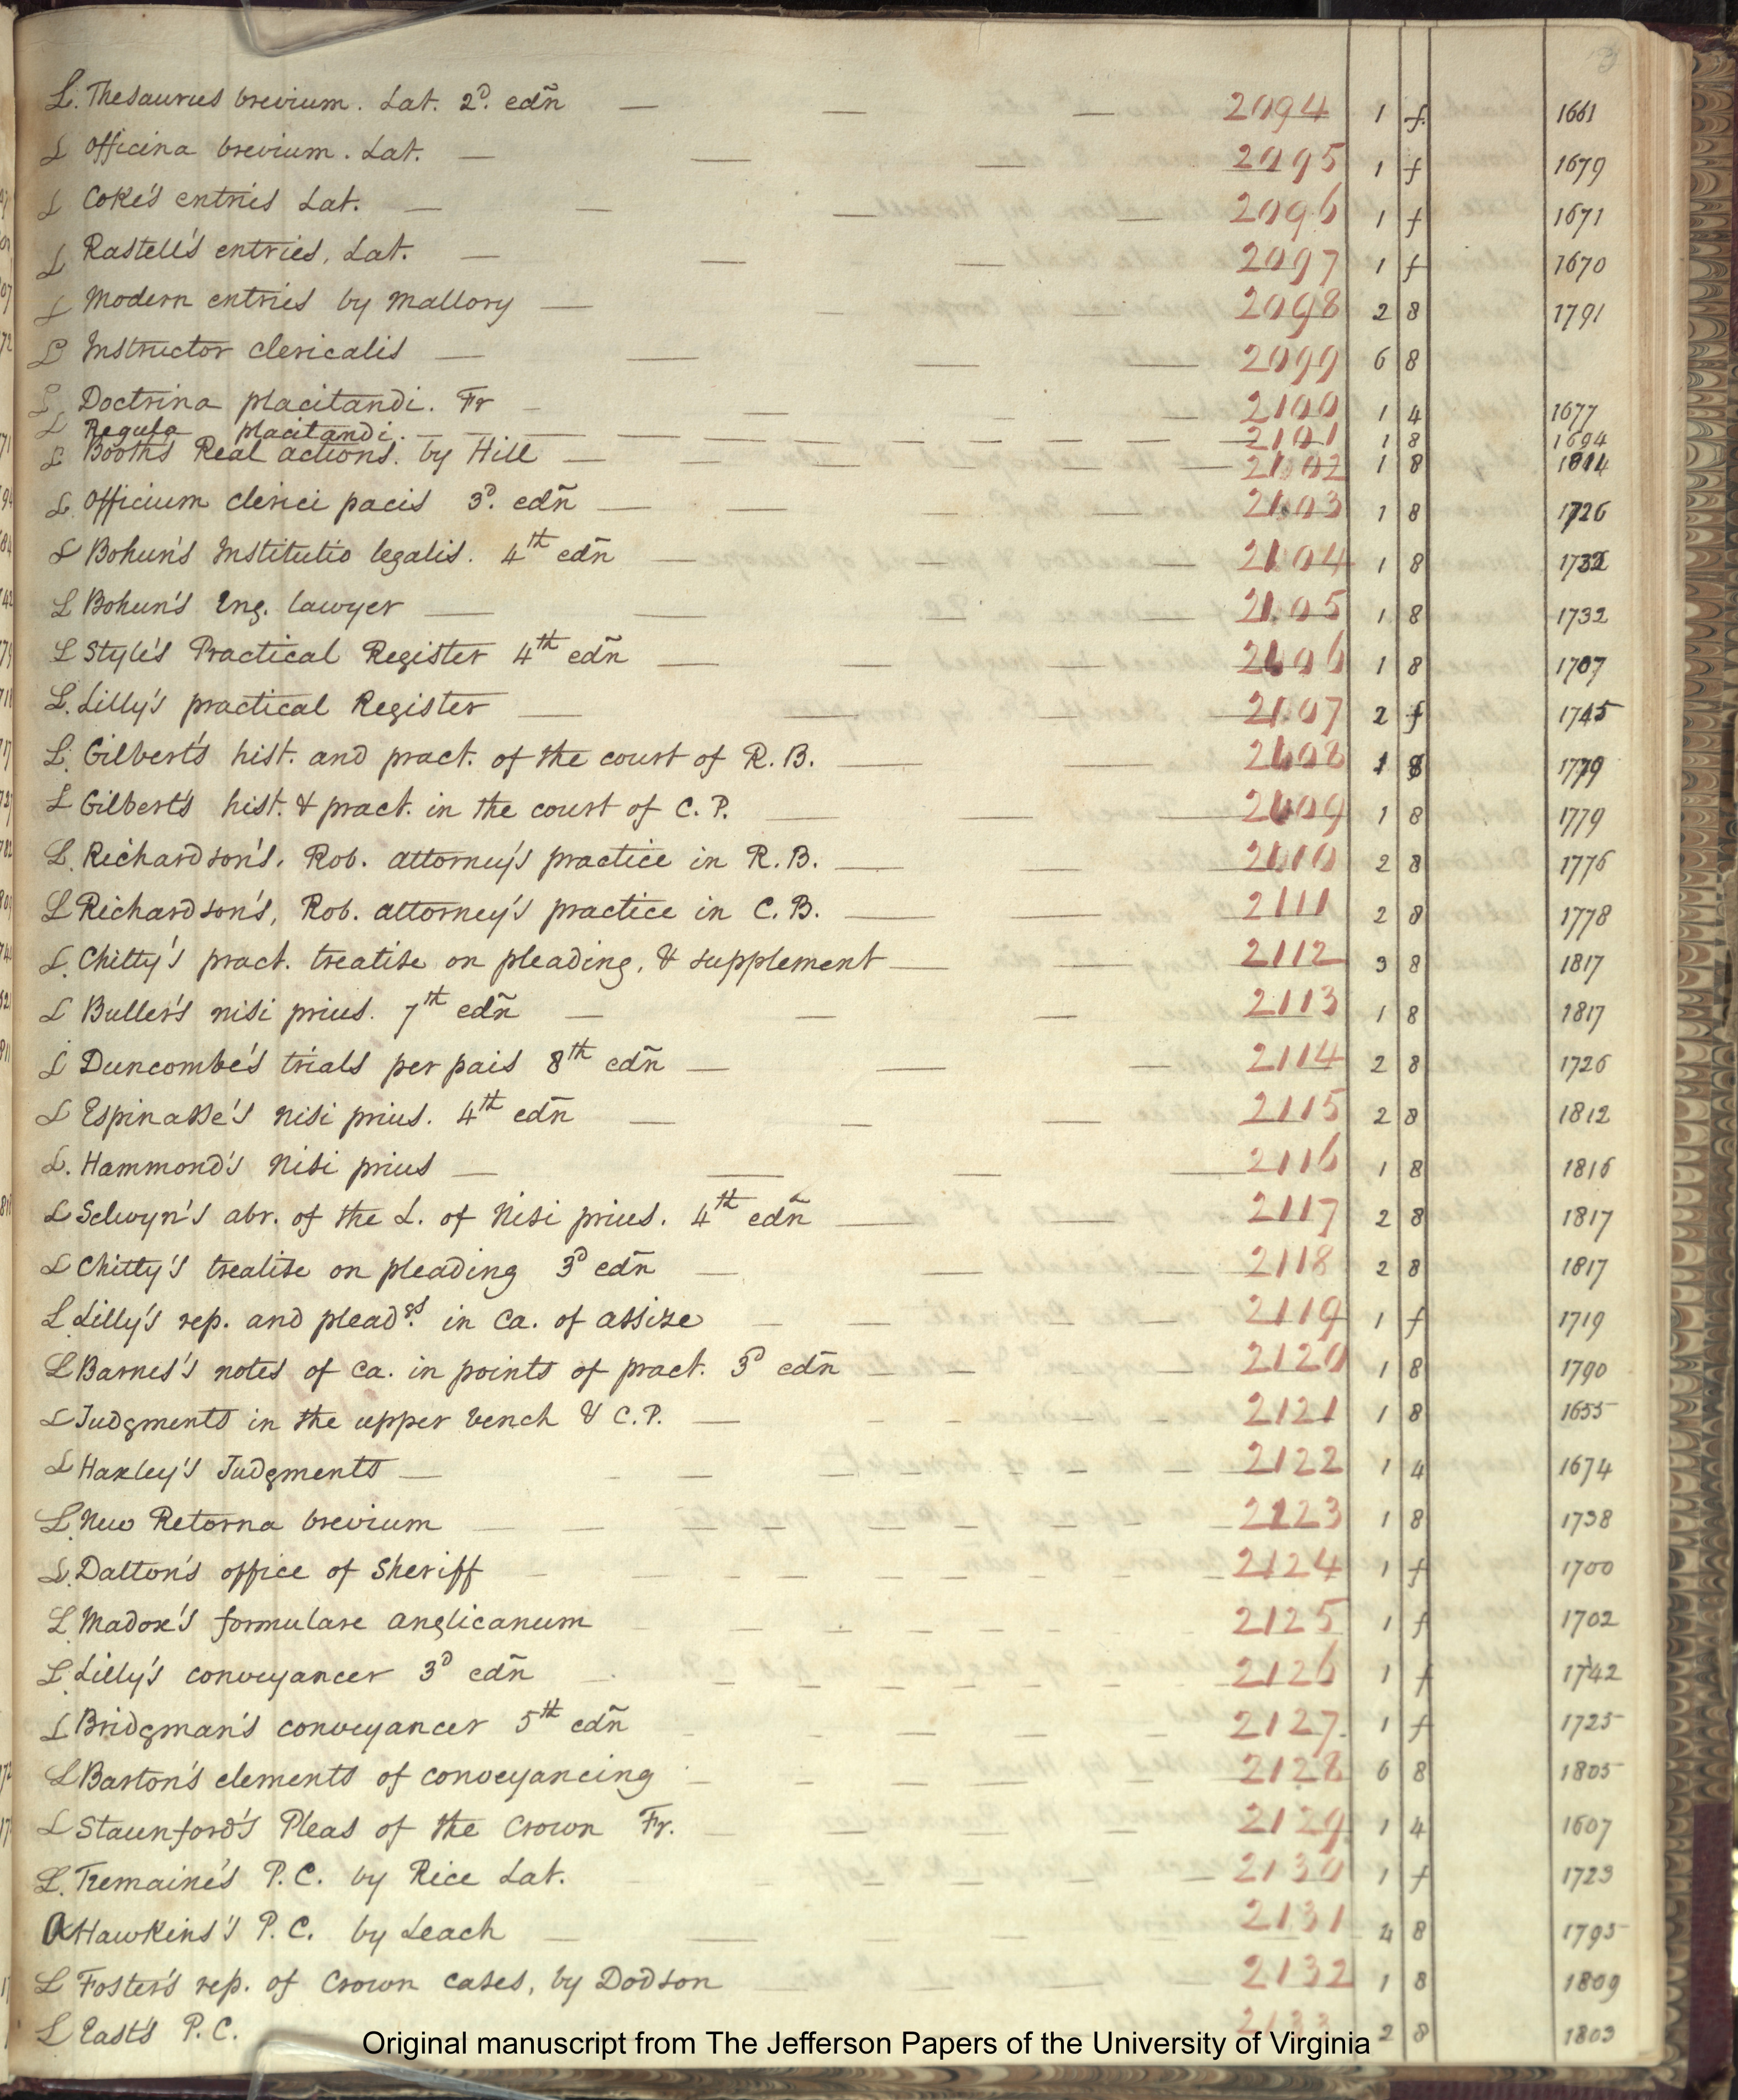 L. Thesaurus brevium. Lat. 2d. edñ — — — 2094 1 f. 1661
L Officina brevium. Lat. — — — 2095 1 f 1679
L Coke's entries Lat. — — — — 2096 1 f 1671
L Rastell's entries, Lat. — — — 2097 1 f 1670
L Modern entries by Mallory — — — 2098 2 8 1791
L Instructor clericalis — — — 2099 6 8
L Doctrina placitandi. Fr — — — 2100 1 4 1677
L Regula placitandi. — — — 2101 1 8 1694
L Booth's Real actions. by Hill — — — 2102 1 8 1814
L Officium clerici pacis 3d. edñ — — — 2103 1 8 1726
L Bohun's Institutio legalis. 4th edñ — — — 2104 1 8 1732
L Bohun's Eng. lawyer — — 2105 1 8 1732
L Style's Practical Register 4th edñ — — — 2106 1 8 1707
L. Lilly's practical Register — — — 2107 2 f 1745
L. Gilbert's hist. and pract. of the court of R. B. — — 2108 1 8 1779
L Gilbert's hist. & pract. in the court of C. P. — — — 2109 1 8 1779
L. Richardson's, Rob. attorney's practice in R. B. — — 2110 2 8 1776
L Richardson's, Rob. attorney's practice in C. B. — — 2111 2 8 1778
L. Chitty's pract. treatise on pleading, & supplement — — 2112 3 8 1817
L Buller's nisi prius. 7th edñ — — — 2113 1 8 1817
L Duncombe's trials per pais 8th edñ — — — 2114 2 8 1726
L Espinasse's nisi prius. 4th edñ — — — 2115 2 8 1812
L. Hammond's Nisi prius — — — — 2116 1 8 1816
L Selwyn's abr. of the L. of Nisi prius. 4th edñ — — 2117 2 8 1817
L Chitty's treatise on pleading 3d edñ — — — 2118 2 8 1817
L Lilly's rep. and pleadgs. in ca. of assize — — — 2119 1 f 1719
L Barnes's notes of ca. in points of pract. 3d edñ — — 2120 1 8 1790
L Judgments in the upper bench & C. P. — — — 2121 1 8 1655
L Haxley's Judgments — — — 2122 1 4 1674
L. New Retorna brevium — — — 2123 1 8 1738
L. Dalton's office of Sheriff — — — 2124 1 f 1700
L. Madox's formulare anglicanum — — — 2125 1 f 1702
L. Lilly's conveyancer 3d edñ — — — 2126 1 f 1742
L Bridgman's conveyancer 5th edñ — — — 2127. 1 f 1725
L Barton's elements of conveyancing — — — 2128 6 8 1805
L Staunford's Pleas of the Crown Fr. — — — 2129 1 4 1607
L. Tremaine's P. C. by Rice Lat. — — — 2130 1 f 1723
Hawkins's P. C. by Leach — — — 2131 4 8 1795
L Foster's rep. of Crown cases, by Dodson — — — 2132 1 8 1809
L East's P. C. 2133 2 8 1803
Original manuscript from The Jefferson Papers of the University of Virginia